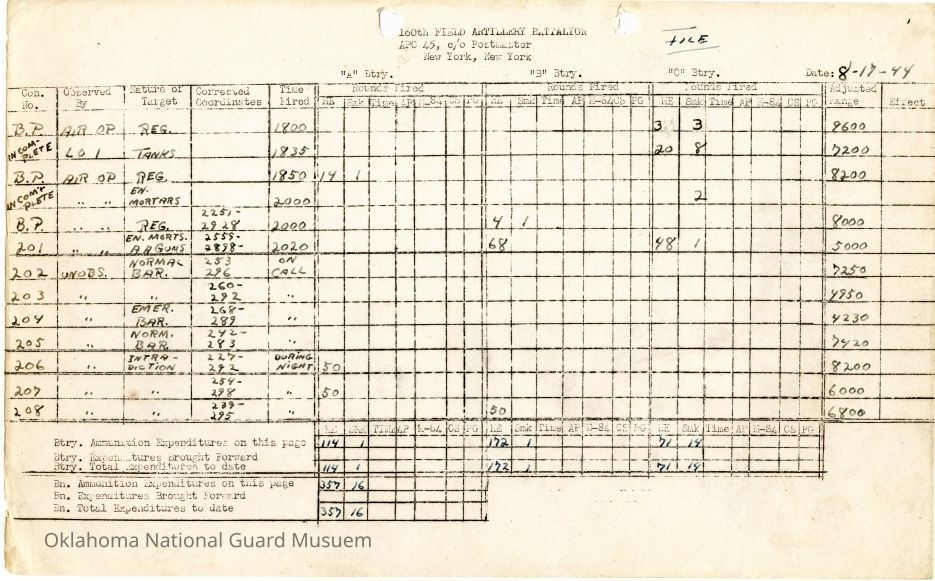 160th FIELD ARTILLERY BATTALION
APO 45, c/o Postmaster
New York, New York
FILE
"A" Btry. "B" Btry. "C" Btry. Date: 8-17-44
Con. No. Observed By Nature of Target Corrected Coordinates Time Fired Rounds Fired Rounds Fired Rounds Fired Adjusted Range Effect
HE Smk Time AP M-84 CS PG HE Smk Time AP M-84 CS PG HE Smk Time AP M-84 CS PG
B.P. AIR OP REG. 1800 3 3 9600
INCOM-PLETE LO 1 TANKS 1835 20 8 7200
B.P. AIR OP REG. 1850 14 1 8200
INCOM'PLETE " " EN. MORTARS 2000 2
B.P. " " REG. 2251-2928 2000 4 1 8000
201 " " EN. MORTS. A.A GUNS 2555-2898- 2020 68 48 1 5000
202 UNOBS. NORMAL BAR. 253 296 ON CALL 7250
203 " " 260-292 " 4950
204 " EMER. BAR. 268-289 " 4230
205 " NORM. BAR. 242-283 " 7420
206 " INTRA-DICTION 227-292 DURING NIGHT 50 8200
207 " " 254-298 " 50 6000
208 " " 239-295 " 50 6800
HE Smk Time AP M-84 CS PG HE Smk Time AP M-84 CS PG HE Smk Time AP M-84 CS PG
Btry. Ammunition Expenditures on this page 114 1 172 1 71 14
Btry. Expenditures Brought Forward
Btry. Total Expenditures to date 114 1 172 1 71 14
Bn. Ammunition Expenditures on this page 357 16
Bn. Expenditures Brought Forward
Bn. Total Expenditures to date 357 16
Oklahoma National Guard Musuem